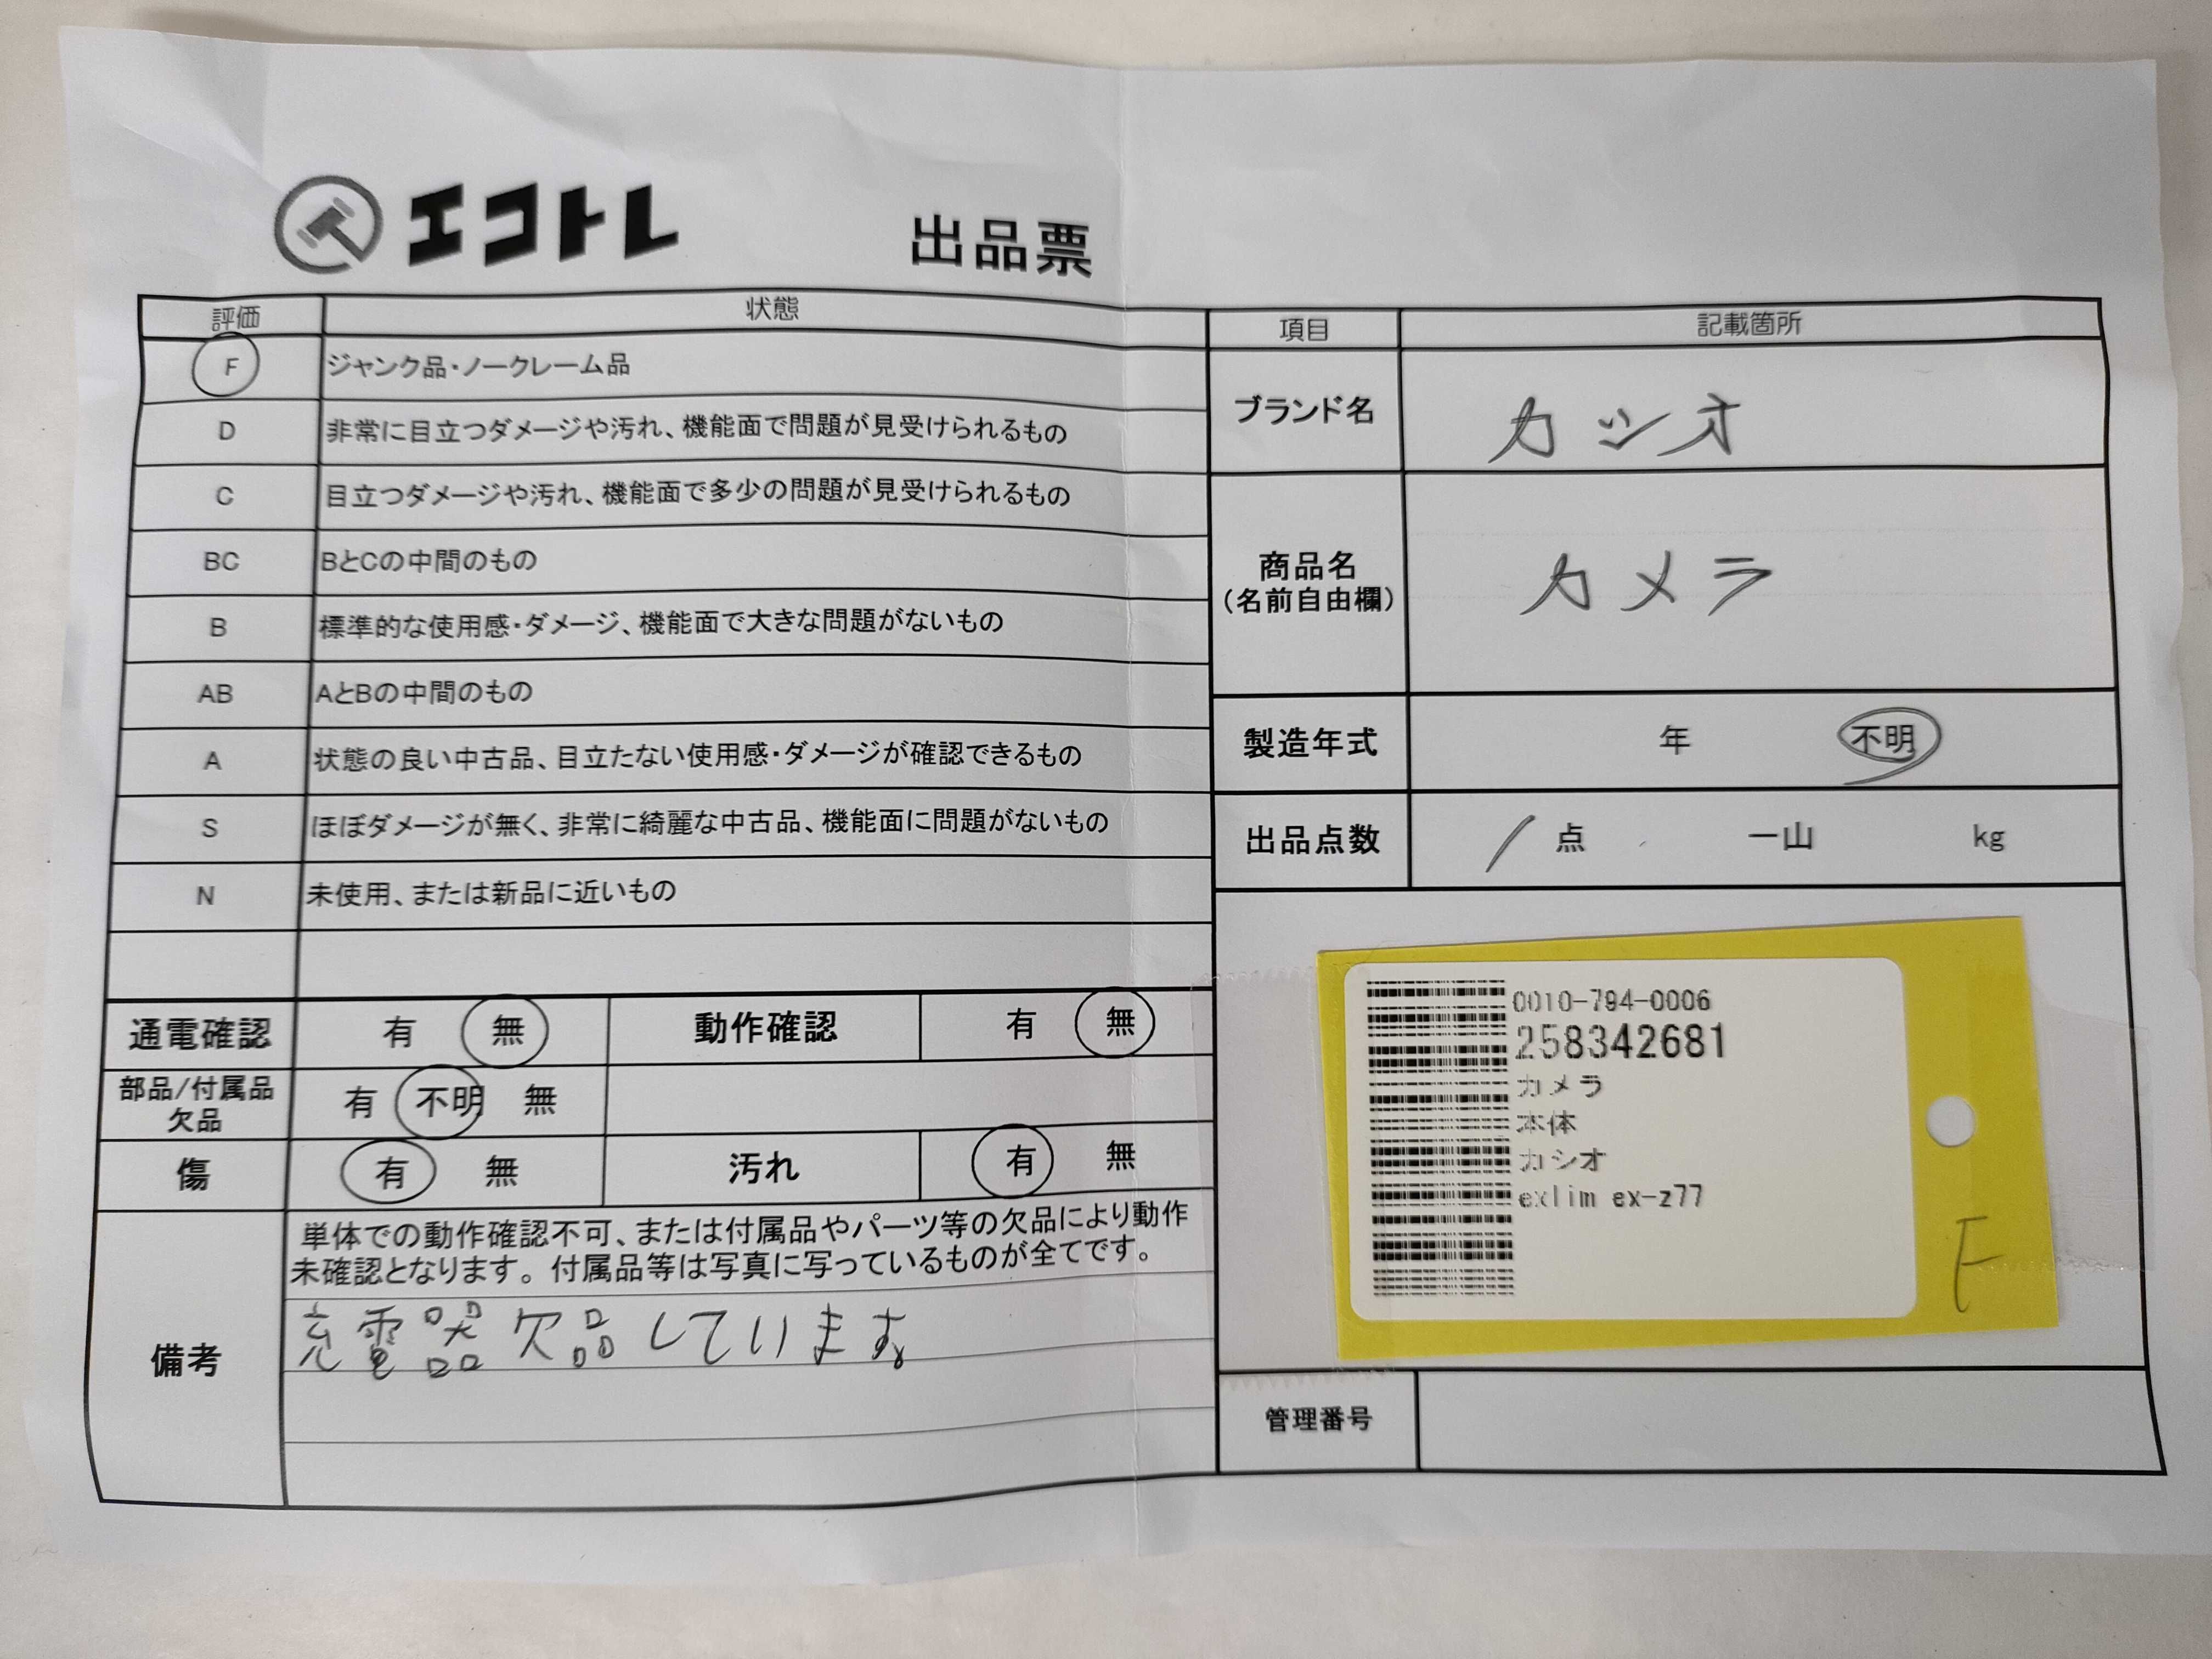 エコトレ
出品票
評価 状態
F ジャンク品・ノークレーム品
D 非常に目立つダメージや汚れ、機能面で問題が見受けられるもの
C 目立つダメージや汚れ、機能面で多少の問題が見受けられるもの
BC BとCの中間のもの
B 標準的な使用感・ダメージ、機能面で大きな問題がないもの
AB AとBの中間のもの
A 状態の良い中古品、目立たない使用感・ダメージが確認できるもの
S ほぼダメージが無く、非常に綺麗な中古品、機能面に問題がないもの
N 未使用、または新品に近いもの
通電確認 有 無 動作確認 有 無
部品/付属品
欠品 有 不明 無
傷 有 無 汚れ 有 無
備考
単体での動作確認不可、または付属品やパーツ等の欠品により動作
未確認となります。付属品等は写真に写っているものが全てです。
充電器欠品しています。
項目 記載箇所
ブランド名 カシオ
商品名
(名前自由欄) カメラ
製造年式 年 不明
出品点数 1点 一山 kg
0010-794-0006
258342681
カメラ
本体
カシオ
exlim ex-z77
F
管理番号